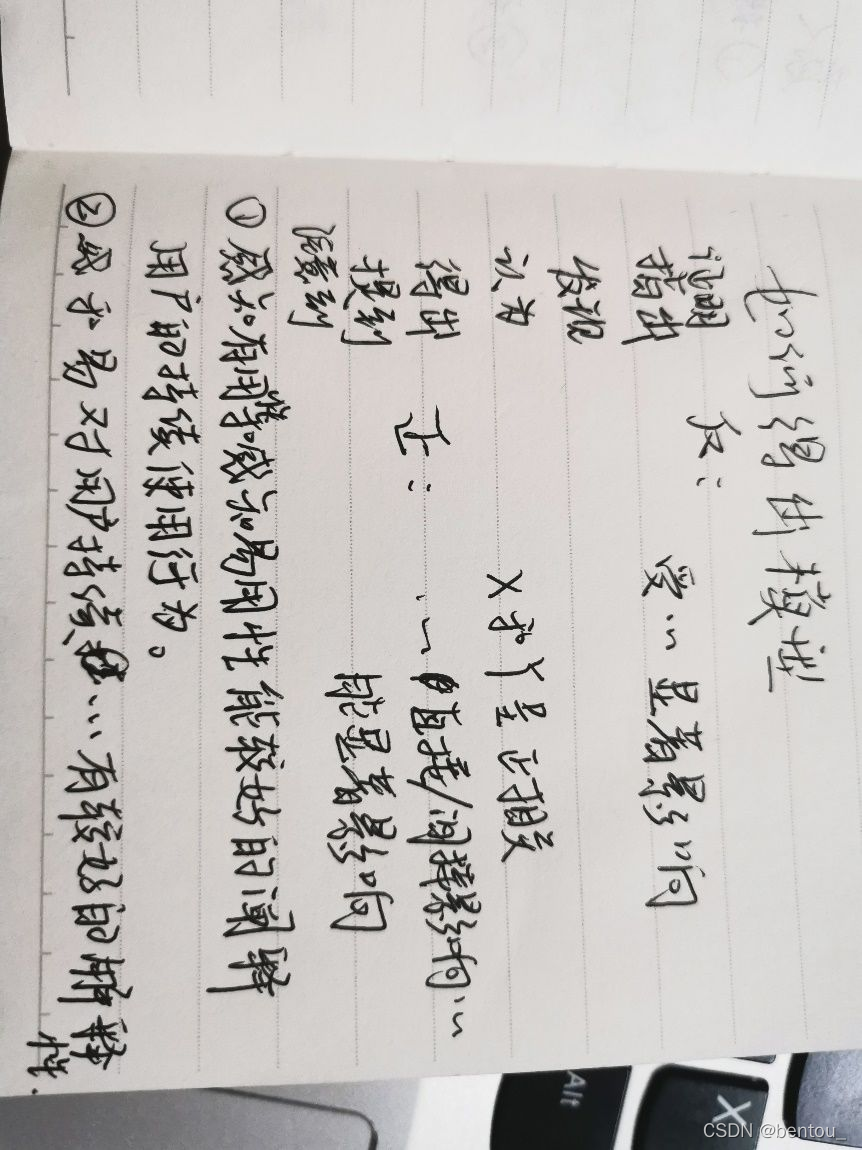 如何得出模型
证明 反:
指出 受… 显著影响
发现
认为 X和Y呈正相关
得出 正: …直接/间接影响…
提到 能显著影响
注意到
① 感知有用等感知易用性能较好的阐释
用户的持续使用行为。
② 感知易对用户持续…有较好的解释
性.
Alt
X
CSDN @bentou_